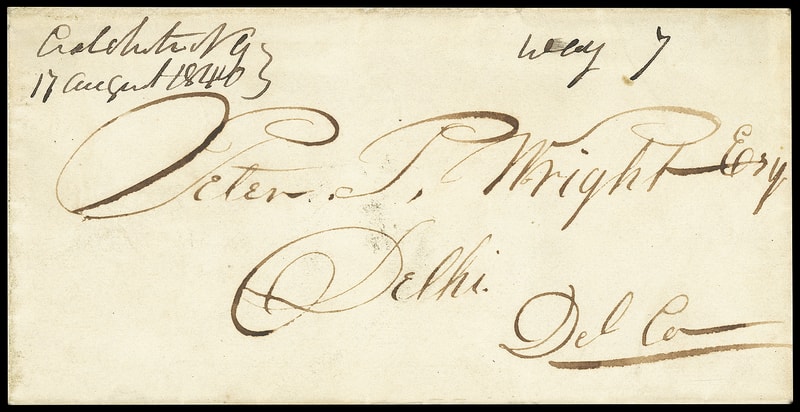 Colchester N Y
17 August 1846
Way 7
Peter. P. Wright Esq
Delhi.
Del Co